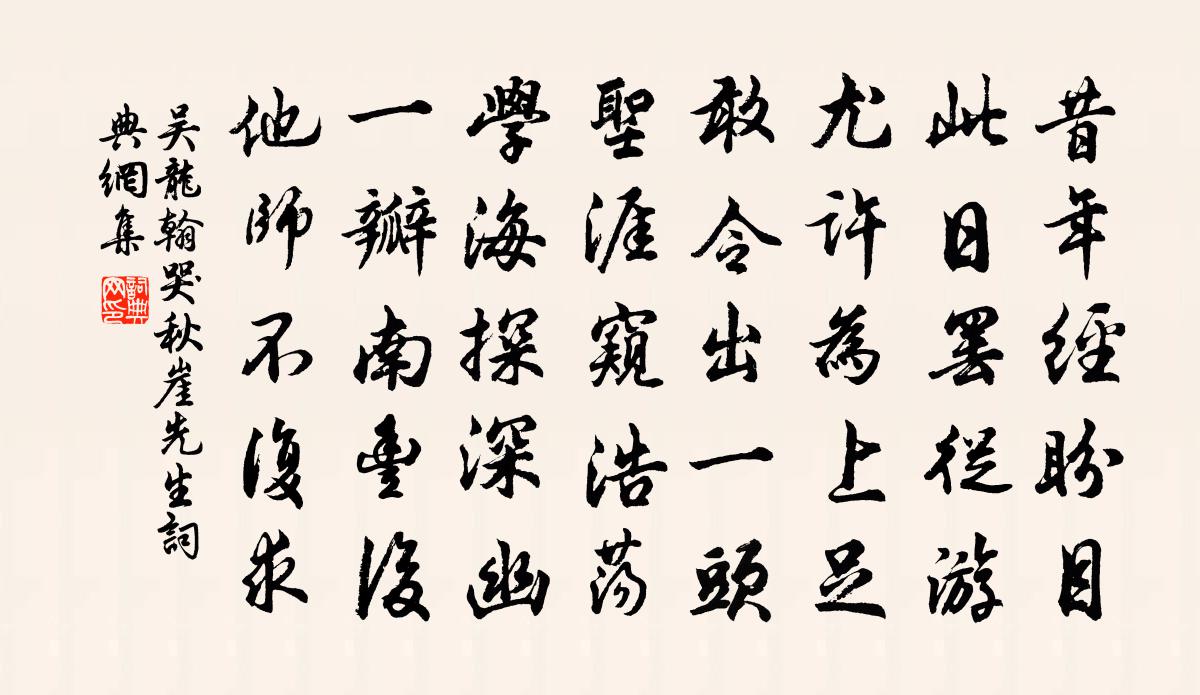 昔年經盼目
此日罢從游
尤許為上足
敢令出一頭
聖涯窺浩荡
學海探深幽
一瓣南豊後
他師不復求
吴龍翰哭秋崖先生詞
典網集
詞典
网印